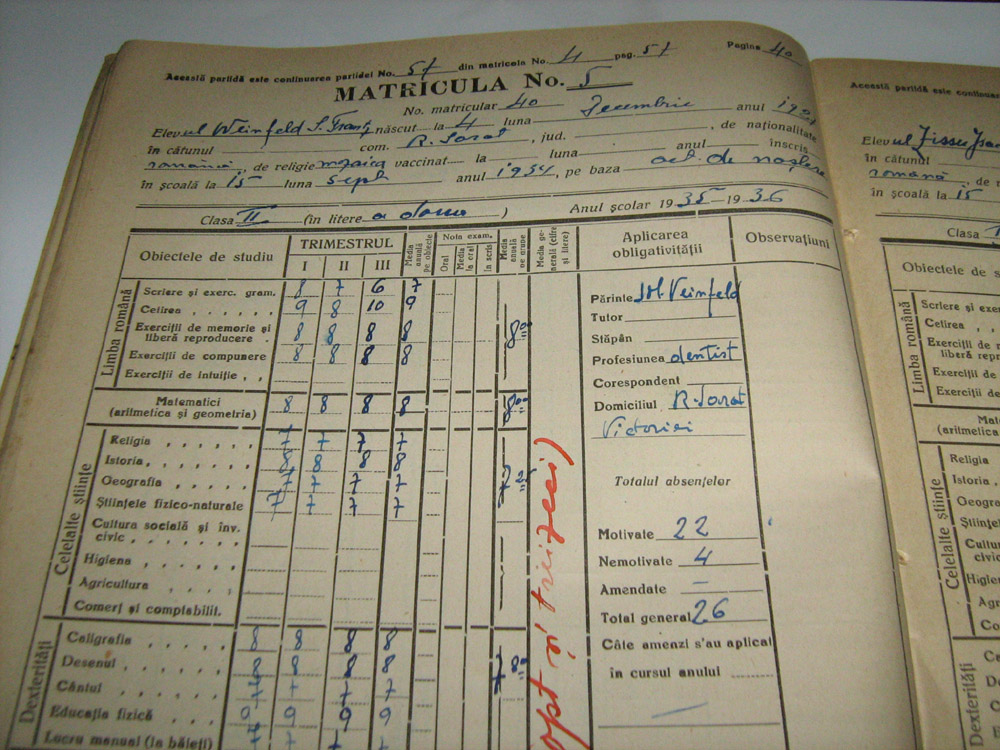 Pagina 40
Această partidă este continuarea partidei No. 57 din matricola No. 4 pag. 57
MATRICULA No. 5
No. matricular 40
Elevul Weinfeld S. născut la 4 luna Decembrie anul
în cătunul com. R. Sarat, jud. , de naționalitate
română, de religie mozaică vaccinat la luna anul înscris
în școală la 15 luna sept anul 1934, pe baza act. de naștere
Clasa II (în litere a doua) Anul școlar 1935-1936
Obiectele de studiu
TRIMESTRUL
I II III
Media anuală pe obiecte
Nota exam.
Oral
Media la oral
în scris
Media anuală pe grupe
Media generală (cifre și litere)
Aplicarea obligativității
Observațiuni
Limba română
Scriere și exerc. gram. 8 7 6 7
Cetirea 9 8 10 9
Exerciții de memorie și liberă reproducere 8 8 8 8
Exerciții de compunere 8 8 8 8
Exerciții de intuiție
8 00
Matematici (aritmetica și geometria) 8 8 8 8
8 00
Celelalte științe
Religia 7 7 7 7
Istoria 8 8 8 8
Geografia 7 7 7 7
Științele fizico-naturale 7 7 7 7
7 25
Cultura socială și înv. civic
Higiena
Agricultura
Comerț și contabilit.
Dexterități
Caligrafia 8 8 8 8
Desenul 8 8 8 8
Cântul 7 7 7 7
Educația fizică 9 9 9 9
Lucru manual (la băieți)
opt și treizeci)
Părinte Weinfeld
Tutor
Stăpân
Profesiunea dentist
Corespondent
Domiciliul R. Sarat
Victoriei
Totalul absențelor
Motivate 22
Nemotivate 4
Amendate —
Total general 26
Câte amenzi s'au aplicat
în cursul anului
Această partidă este continuarea
Elevul
în cătunul
română, de
în școală la 15
Clasa
Obiectele de studiu
Limba română
Scriere și
Cetirea
Exerciții de
liberă
Exerciții de
Exerciții de
(aritmetica
Celelalte științe
Religia
Istoria
Geografia
Dexterități